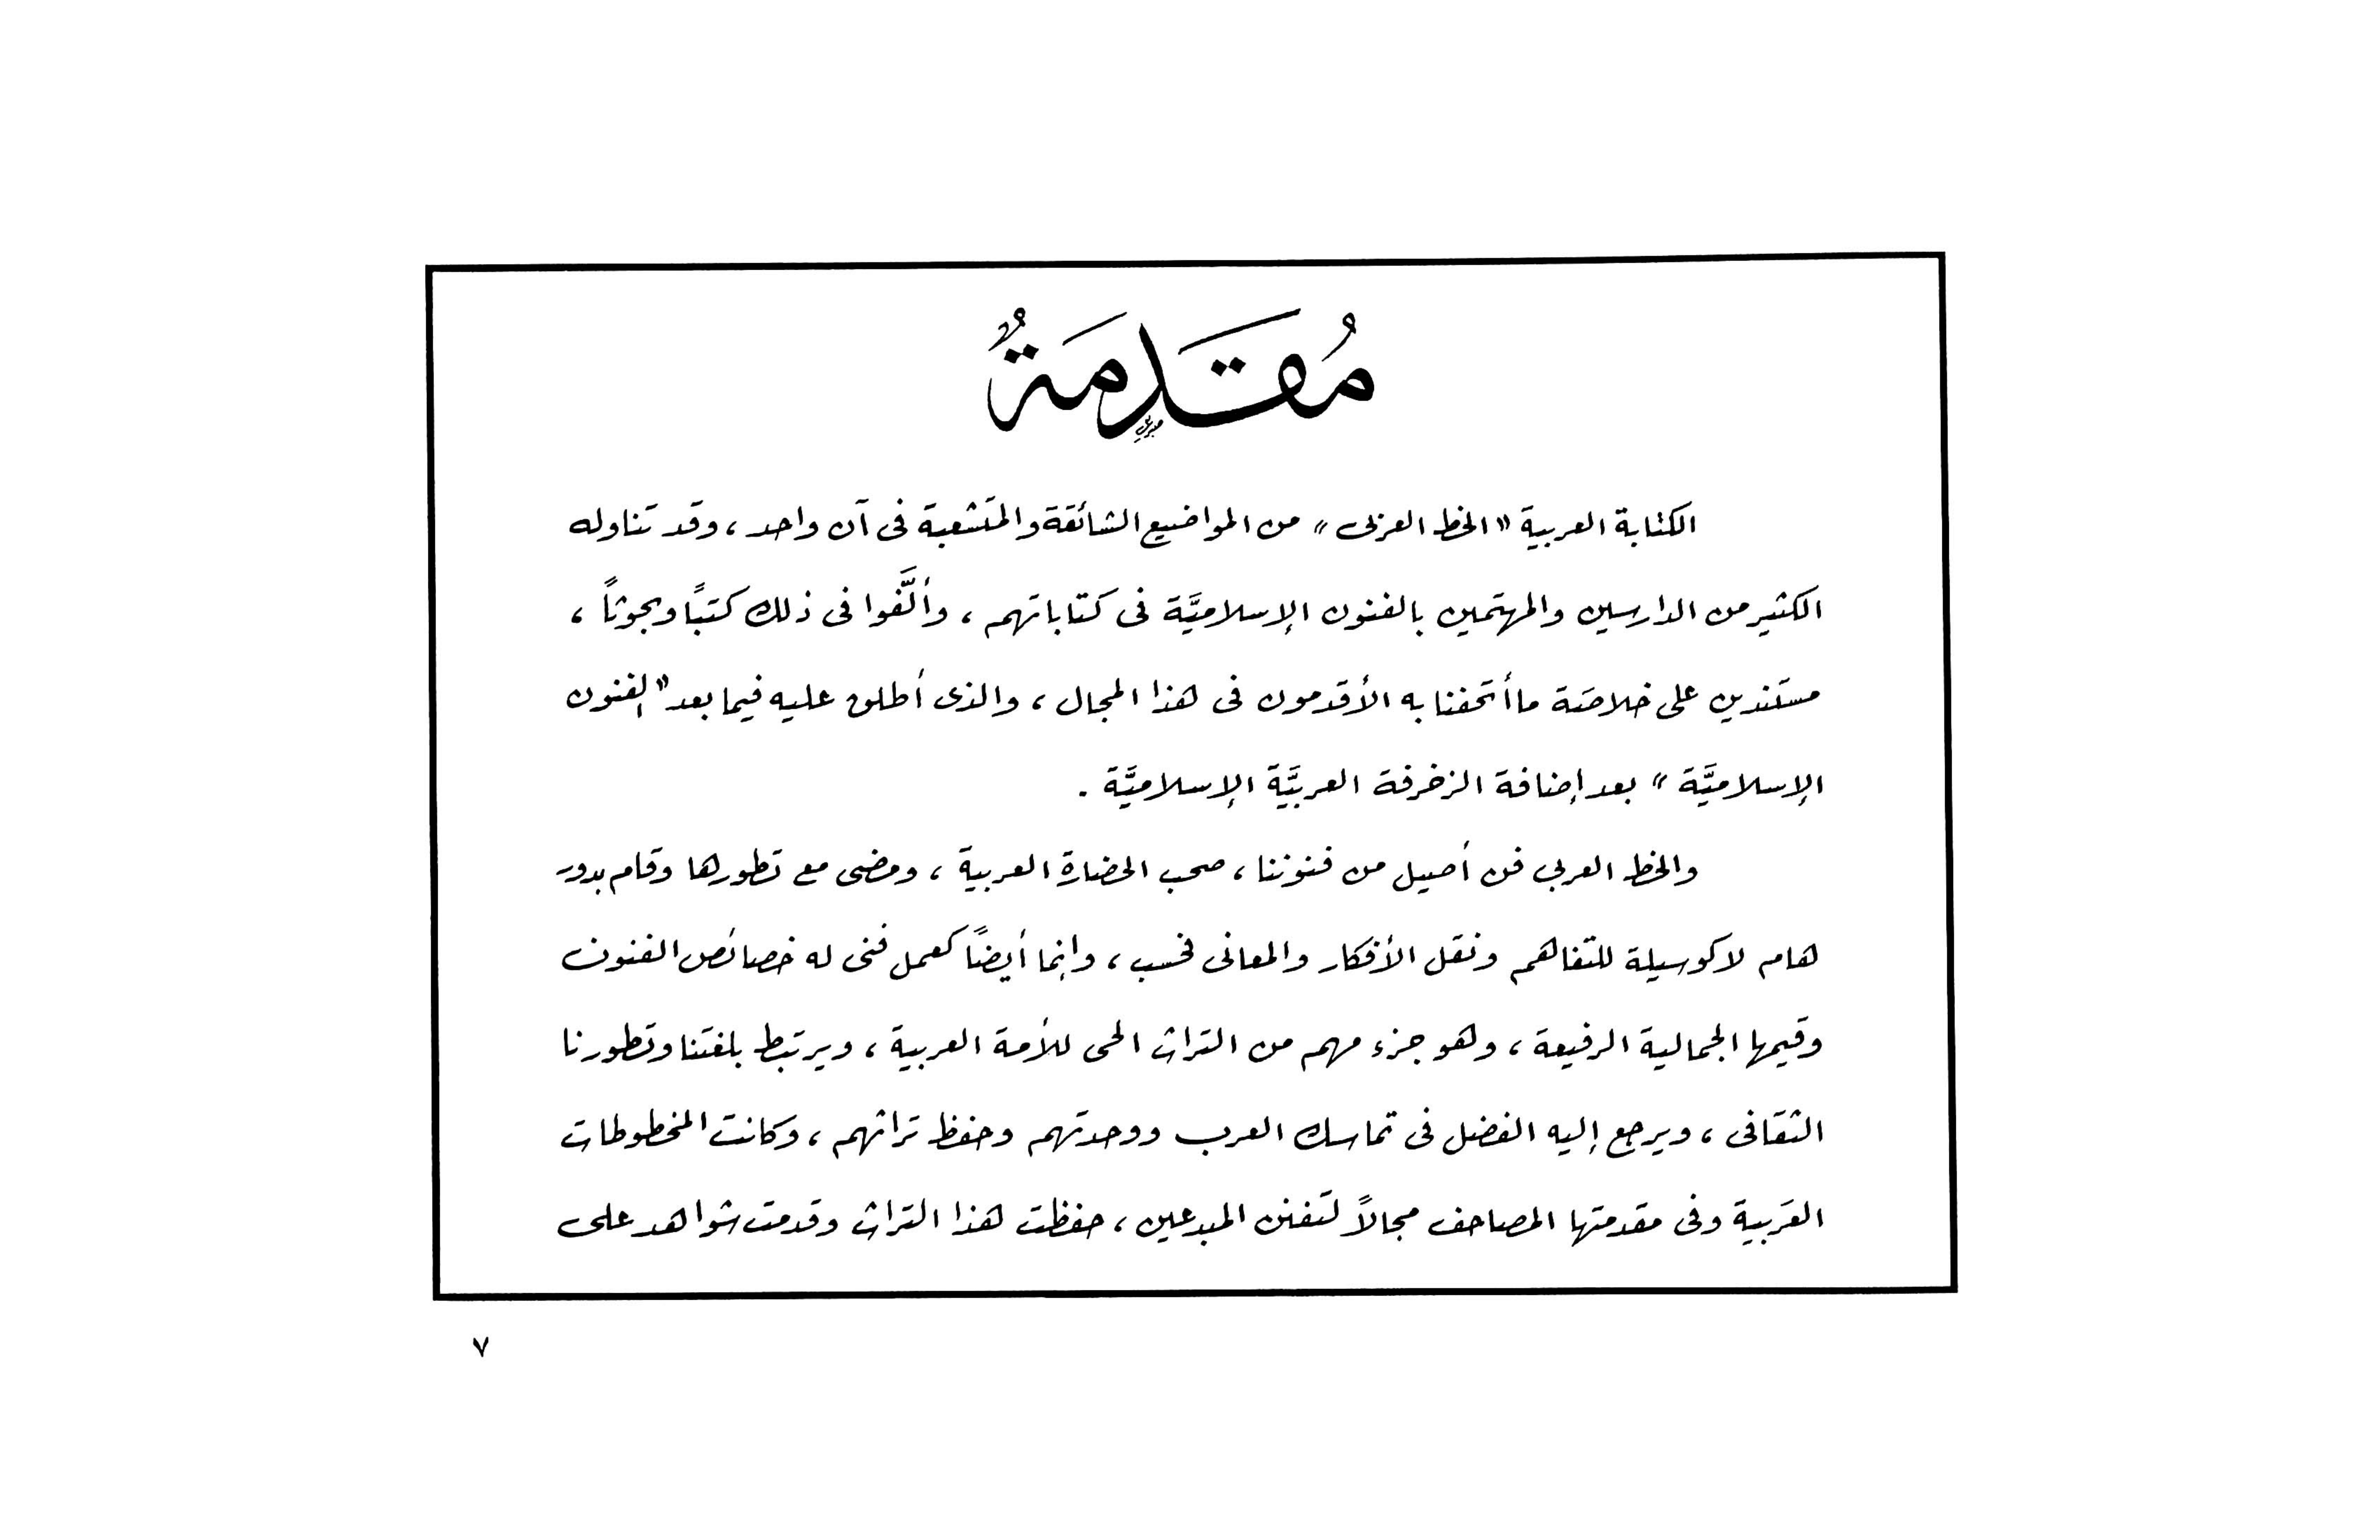 مُقَدِمَةٌ
الكتابة العربية «الخط العربى» من المواضيع الشائقة والمتشعبة فى آن واحد ، وقد تناوله
الكثير من الدارسين والمهتمين بالفنون الإسلاميَّة فى كتاباتهم ، وألَّفوا فى ذلك كتبًا وبحوثاً ،
مستندين على خلاصة ما أتحفنا به الأقدمون فى هذا المجال ، والذى أطلق عليه فيما بعد «الفنون
الإسلاميَّة » بعد إضافة الزخرفة العربيَّة الإسلاميَّة .
والخط العربي فن أصيل من فنوننا ، صحب الحضارة العربية ، ومضى مع تطورها وقام بدور
هام لا كوسيلة للتفاهم ونقل الأفكار والمعانى فحسب ، وإنما أيضًا كعمل فنى له خصائص الفنون
وقيمها الجمالية الرفيعة ، وهو جزء مهم من التراث الحى للأمة العربية ، ويرتبط بلغتنا وتطورنا
الثقافى ، ويرجع إليه الفضل فى تماسك العرب ووحدتهم وحفظ تراثهم ، وكانت المخطوطات
العَربية وفى مقدمتها المصاحف مجالاً لتفنن المبدعين ، حفظت هذا التراث وقدمت شواهد على
٧